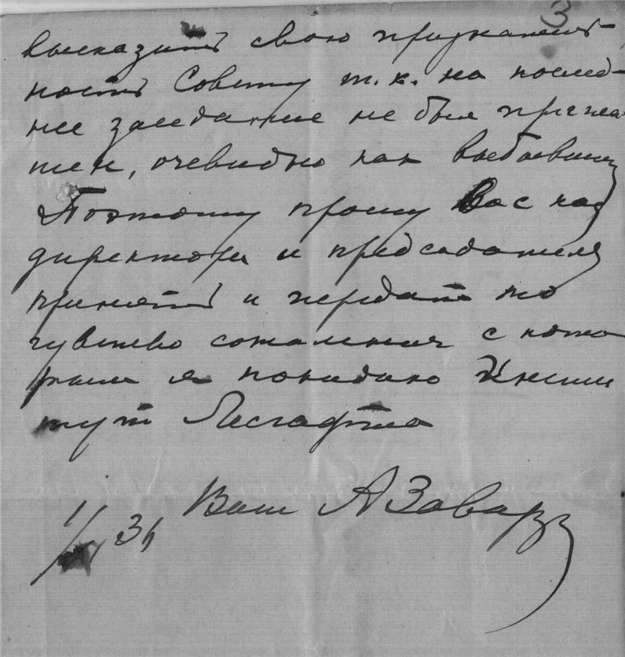 3
высказать свою признатель-
ность Совету т.к. на послед-
нее заседание не был пригла
шен, очевидно как выбывший
Поэтому прошу Вас как
директора и председателя
принять и передать то
чувство сожаления с кото
рым я покидаю Инсти
тут Лесгафта
Ваш А Завар
1/ 31